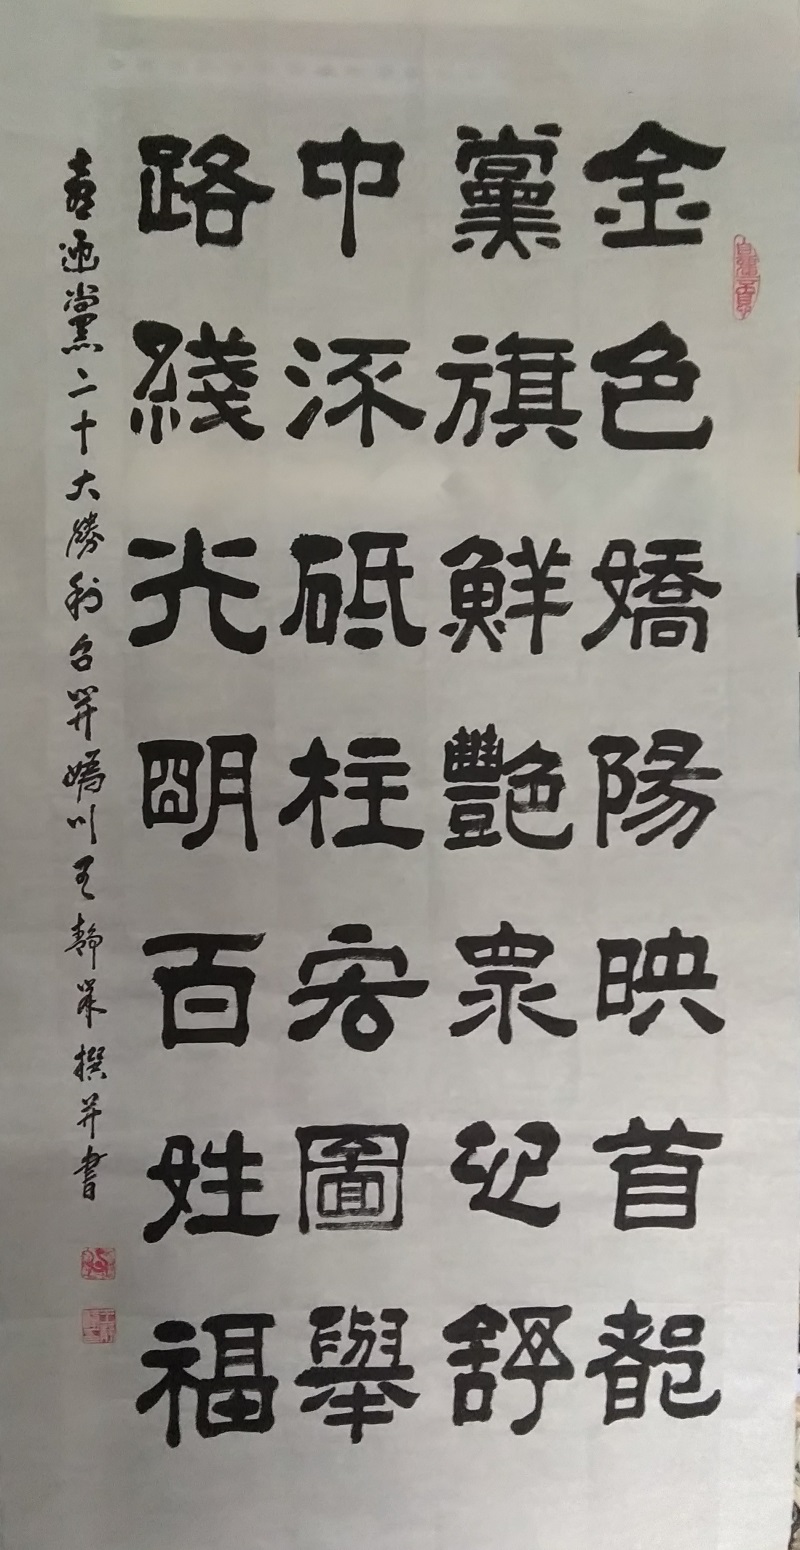 金色嬌陽映首都
黨旗鮮艷衆心舒
中流砥柱宏圖舉
路綫光明百姓福
喜迎黨二十大勝利召開嬀川王靜泉撰并書